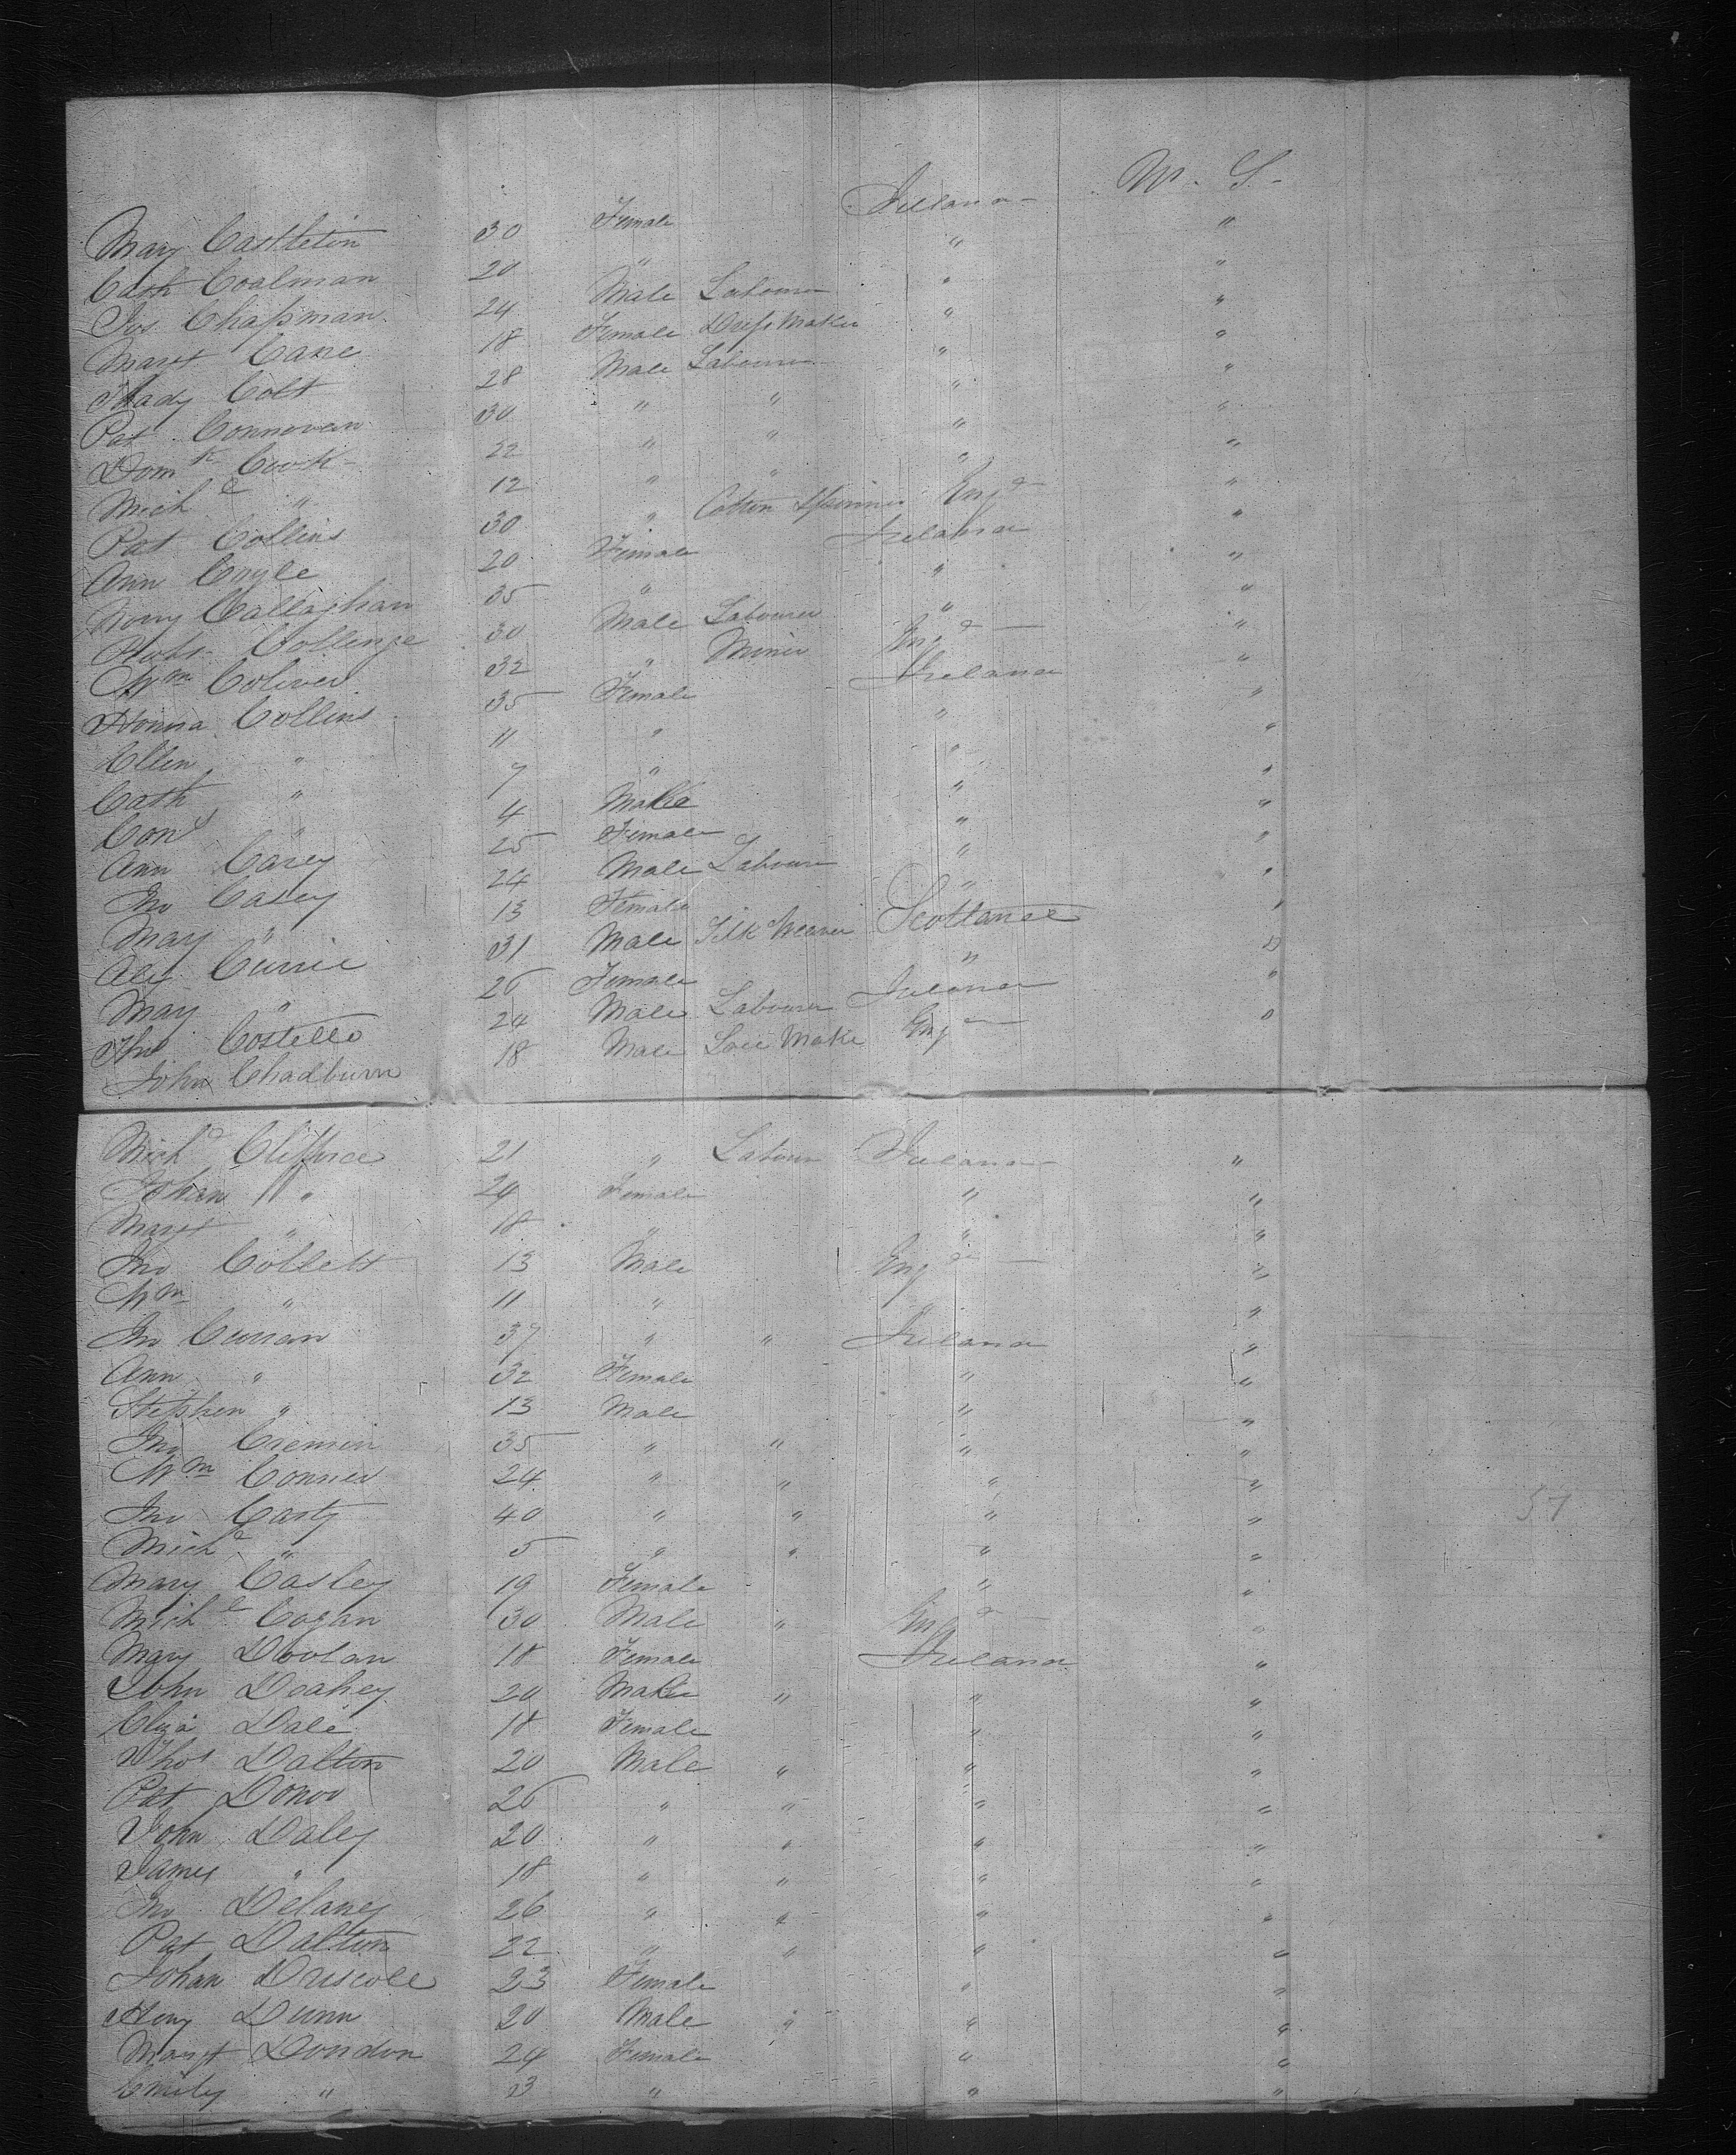 Mary Castleton 30 Female Ireland U. S.
Cath Coalman 20 " " "
Jos Chapman 24 Male Labourer " "
Margt Cane 18 Female Dress Maker " "
Thady Colt 28 Male Labourer " "
Pat Connovan 30 " " " "
Domk Cook 22 " " " "
Michl " 12 " " " "
Pat Collins 30 " Cotton Spinner Engd "
Ann Coyle 20 Female Ireland "
Nony Callaghan 35 " " "
Robt Collenge 30 Male Labourer " "
Wm Coliver 32 " Miner Engd "
Honna Collins 35 Female Ireland "
Ellen " 11 " " "
Cath " 7 " " "
Cons " 4 Male " "
Ann Carey 25 Female " "
Jno Casey 24 Male Labourer " "
Mary " 13 Female " "
Alex Currie 31 Male Silk Weaver Scotland "
Mary " 26 Female " "
Thos Costello 24 Male Labourer Ireland "
John Chadburn 18 Male Lace Maker Engd "
Michl Clifford 21 " Labour Ireland "
Johan " 24 Female " "
Margt " 18 " " "
Jno Collett 13 Male Engd "
Wm " 11 " " "
Jno Curran 37 " " Ireland "
Ann " 32 Female " "
Stephen " 13 Male " "
Jno Cremin 35 " " " "
Wm Conner 24 " " " "
Jno Carty 40 " " " "
Michl " 5 " " " "
Mary Casley 19 Female " "
Michl Cogan 30 Male " Engd "
Mary Doolan 18 Female Ireland "
John Deahey 20 Male " " "
Eliza Dale 18 Female " "
Thos Dalton 20 Male " " "
Pat Donov 26 " " " "
John Daley 20 " " " "
James " 18 " " " "
Jno Delaney 26 " " " "
Pat Dalton 22 " " " "
Johan Driscole 23 Female " "
Heny Dunn 20 Male " " "
Margt Dondon 24 Female " "
Emily " 3 " " "
57